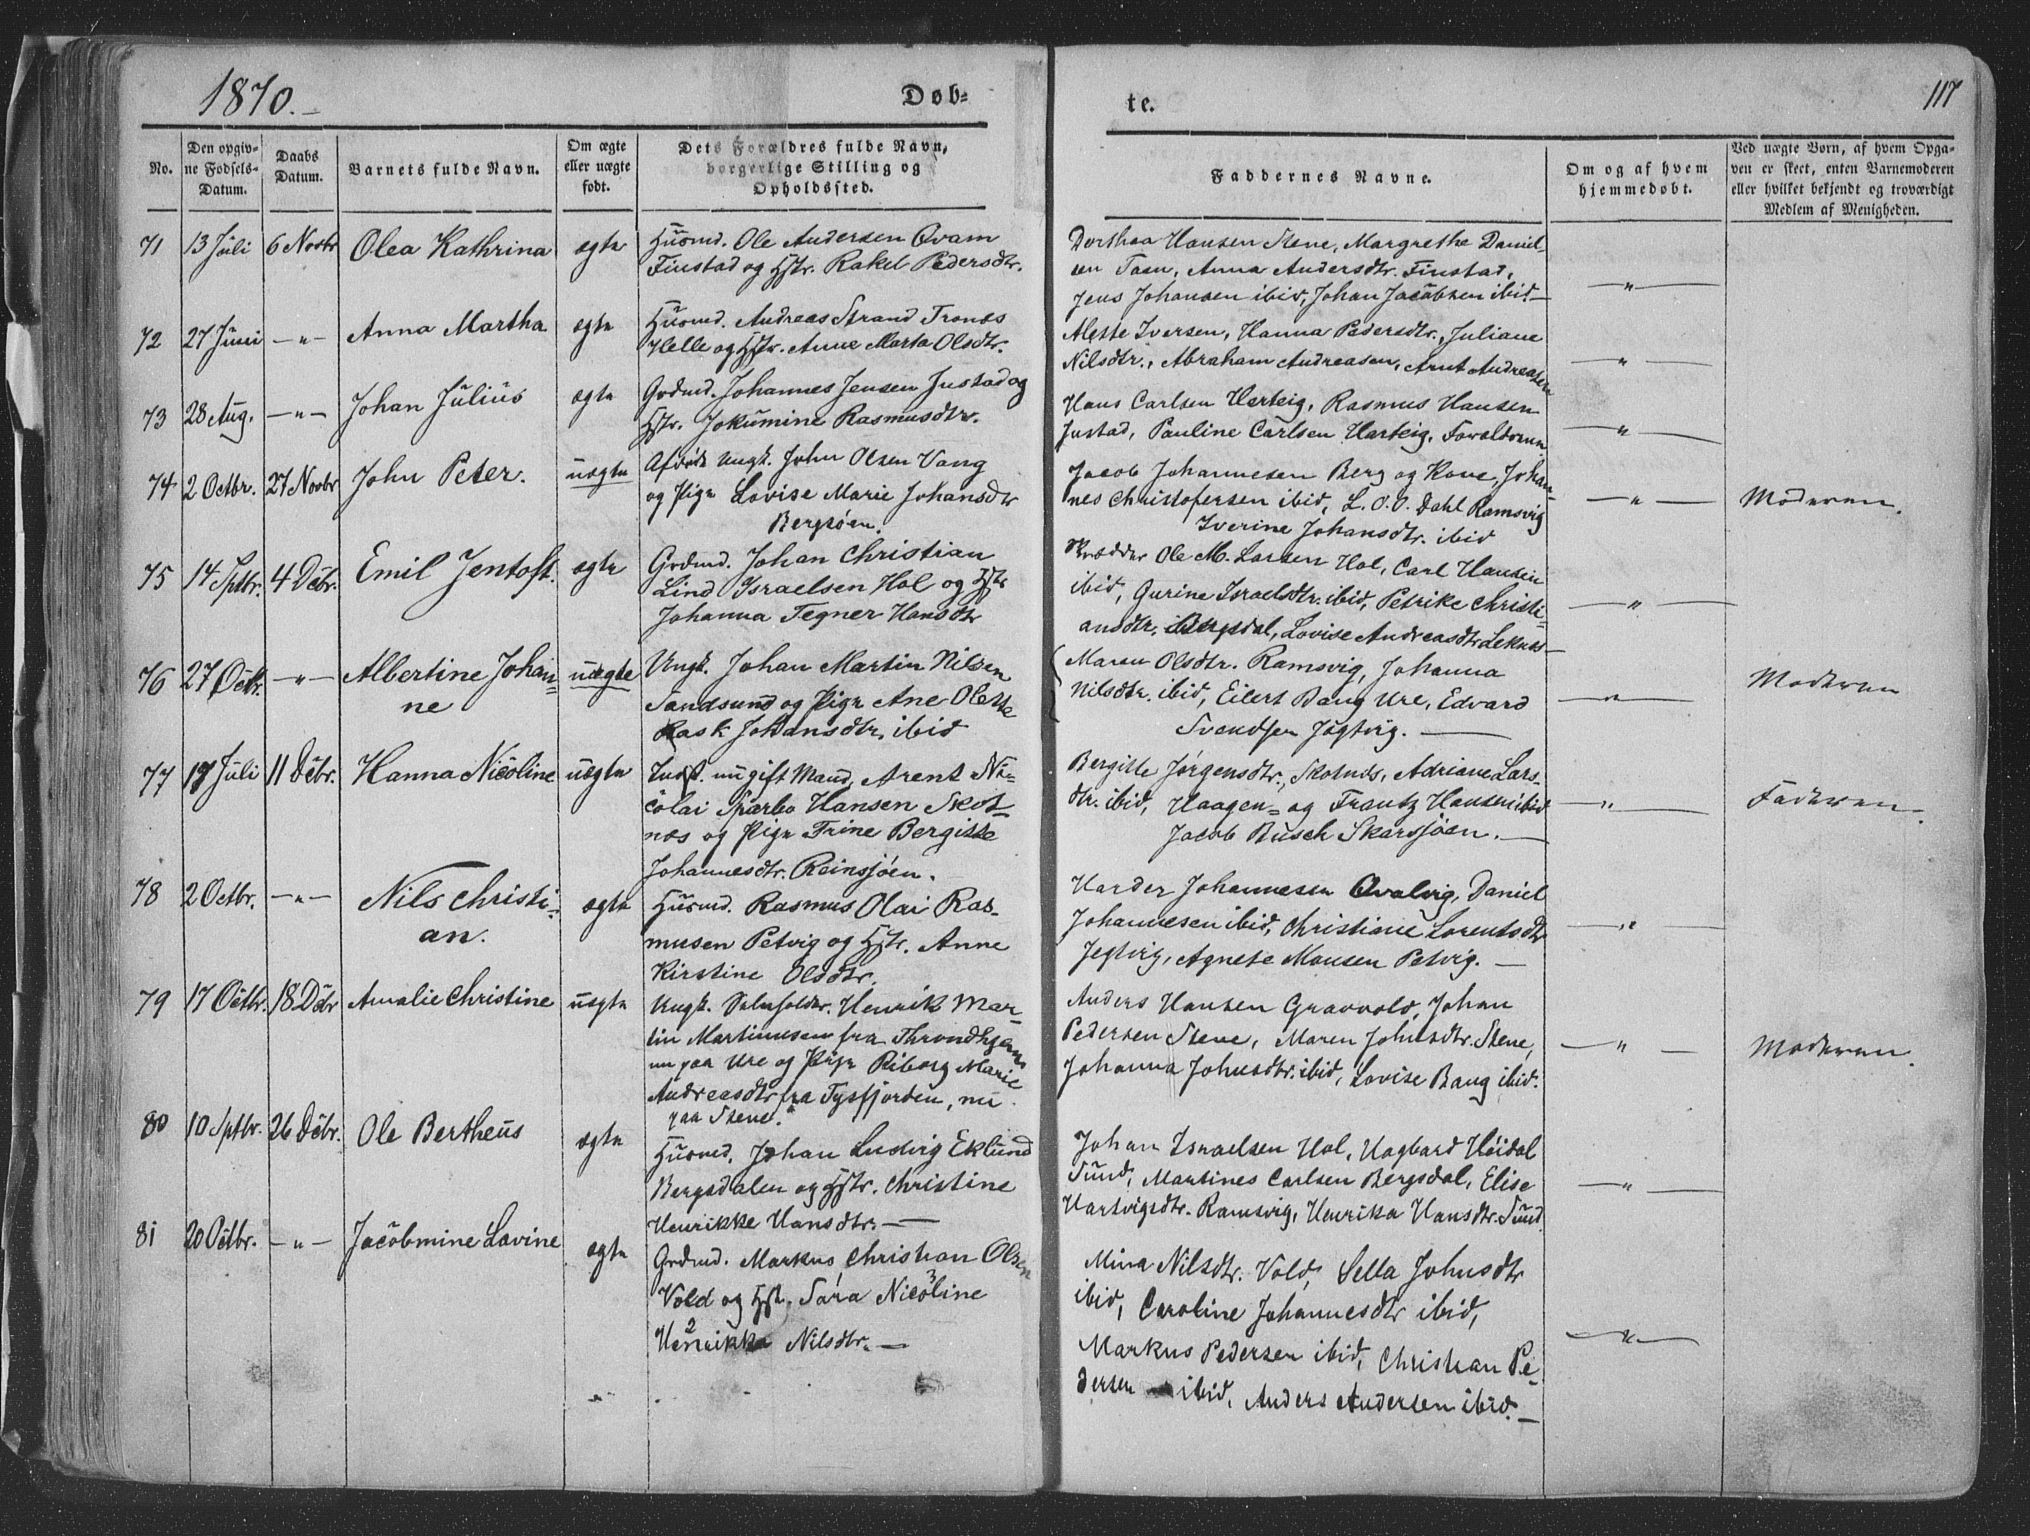 1870.
Døb-
te.
117
No.
Den opgiv-
ne Fødsels-
Datum.
Daabs
Datum.
Barnets fulde Navn.
Om ægte
eller uægte
født.
Dets Forældres fulde Navn,
borgerlige Stilling og
Opholdssted.
Faddernes Navne.
Om og af hvem
hjemmedøbt.
Ved uægte Børn, af hvem Opga-
ven er skeet, enten Barnemoderen
eller hvilket bekjendt og troværdigt
Medlem af Menigheden.
71 13 Juli 6 Novbr Olea Kathrina ægte
Huusmd. Ole Andersen Qvam
Finstad og Hstr. Rakel Pedersdtr.
Dorthea Hansen Stene, Margrethe Daniel-
sen Toen, Anna Andersdtr. Finstad,
Jens Johansen ibid, Johan Jacobsen ibid.—
—"—
72 27 Juni —"— Anna Martha ægte
Huusmd. Andreas Strand Tronæs
Helle og Hstr. Anne Marta Olsdtr.
Alette Iversen, Hanna Pedersdtr., Juliane
Nilsdtr., Abraham Andreasen, Arnt Andreasen
—"—
73 28 Aug. —"— Johan Julius ægte
Grdmd. Johannes Jensen Justad og
Hstr. Jokumine Rasmusdtr.
Hans Carlsen Herteig, Rasmus Hansen
Justad, Pauline Carlsen Harteig, Forældrene
—"—
74 2 Octbr. 27 Novbr John Peter. uægte
Afdøde Ungk. John Olsen Vang
og Pige Lovise Marie Johansdtr
Bergsøen.
Jacob Johannesen Berg og Kone, Johan-
nes Christofersen ibid, L. O. O. Dahl Ramsvig
Iverine Johansdtr. ibid
—"— Moderen.
75 14 Sptbr. 4 Dcbr. Emil Jentoft. ægte
Grdmd. Johan Christian
Lind Israelsen Hol og Hstr
Johanna Tegner Hansdtr
Skrædder Ole M. Larsen Hol, Carl Hansen
ibid, Gurine Israelsdtr. ibid, Petrike Christi-
ansdtr. Bergsdal, Lovise Andreasdtr Leknes—
—"—
76 27 Octbr. —"— Albertine Johan-
ne uægte
Ungk. Johan Martin Nilsen
Sandsund og Pige Ane Olette
Rask Johansdtr. ibid
Maren Olsdtr. Ramsvig, Johanna
Nilsdtr. ibid, Eilert Bang Ure, Edvard
Svendsen Jøgtvig.—
—"— Moderen
77 17 Juli 11 Dcbr. Hanna Nicoline uægte
Indst. ungift Mand, Arent Ni-
colai Sparbo Hansen Skot-
næs og Pige Trine Bergitte
Johannesdtr. Reinsjøen.
Bergitte Jørgensdtr., Skotnæs, Adriane Lars-
dtr. ibid, Haagen= og Frantz Hansen ibid
Jacob Busch Skarsjøen.—
—"— Faderen.
78 2 Octbr. —"— Nils Christi-
an. ægte
Huusmd. Rasmus Olai Ras-
musen Petvig og Hstr. Anne
Kirstine Olsdtr.
Harder Johannessen Qvalvig, Daniel
Johannesen ibid, Christiane Lorentsdtr
Jegtvig, Agnete Monsen Petvig.—
—"—
79 17 Octbr. 18 Dcbr Amalie Christine uægte
Ungk. Henrik Mar-
tin Martinussen fra Throndhjem
nu paa Ure og Pige Riborg Marie
Andreasdtr fra Tysfjorden, nu
paa Stene.
Anders Hansen Gravvold, Johan
Pedersen Stene, Maren Johnsdtr. Stene,
Johanna Johnsdtr. ibid, Lovise Bang ibid.
—"— Moderen.
80 10 Sptbr. 26 Dcbr. Ole Bertheus ægte
Huusmd. Johan Ludvig Eklund
Bergsdalen og Hstr. Christine
Henrikke Hansdtr.—
Johan Israelsen Hol, Hagbard Høidal
Sund, Martines Carlsen Bergsdal, Elise
Hartvigsdtr. Ramsvig, Henrika Hansdtr. Sund
—"—
81 20 Octbr. —"— Jacobmine Lovine ægte
Grdmd. Markus Christian Olsen
Vold og Hstr. Sara Nicoline
Henrikka Nilsdtr.—
Mina Nilsdtr. Vold, Sella Johnsdtr
ibid, Caroline Johannesdtr ibid,
Markus Pedersen ibid, Christian Pe-
dersen ibid, Anders Andersen ibid.—
—"—